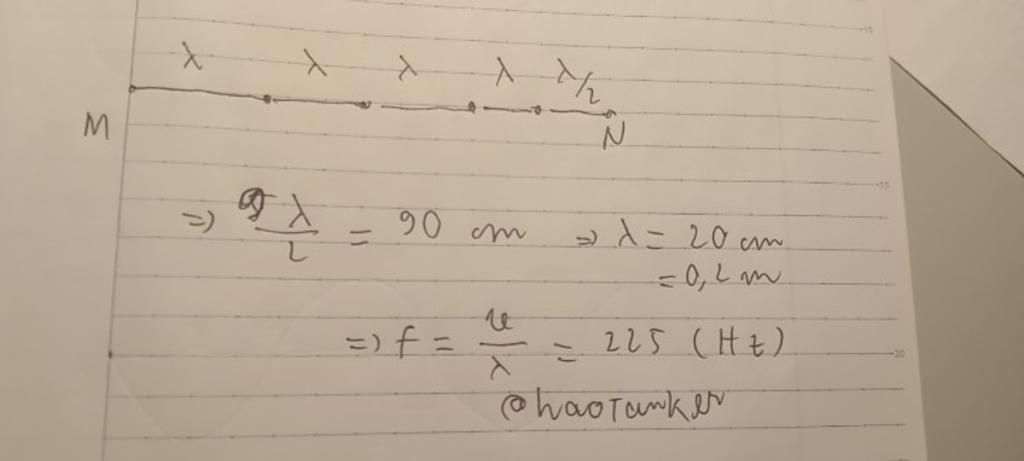 λ λ λ λ λ/2
M N
=> 9λ/2 = 90 cm => λ = 20 cm
= 0,2 m
=> f = v/λ = 225 (Hz)
@haoTanker